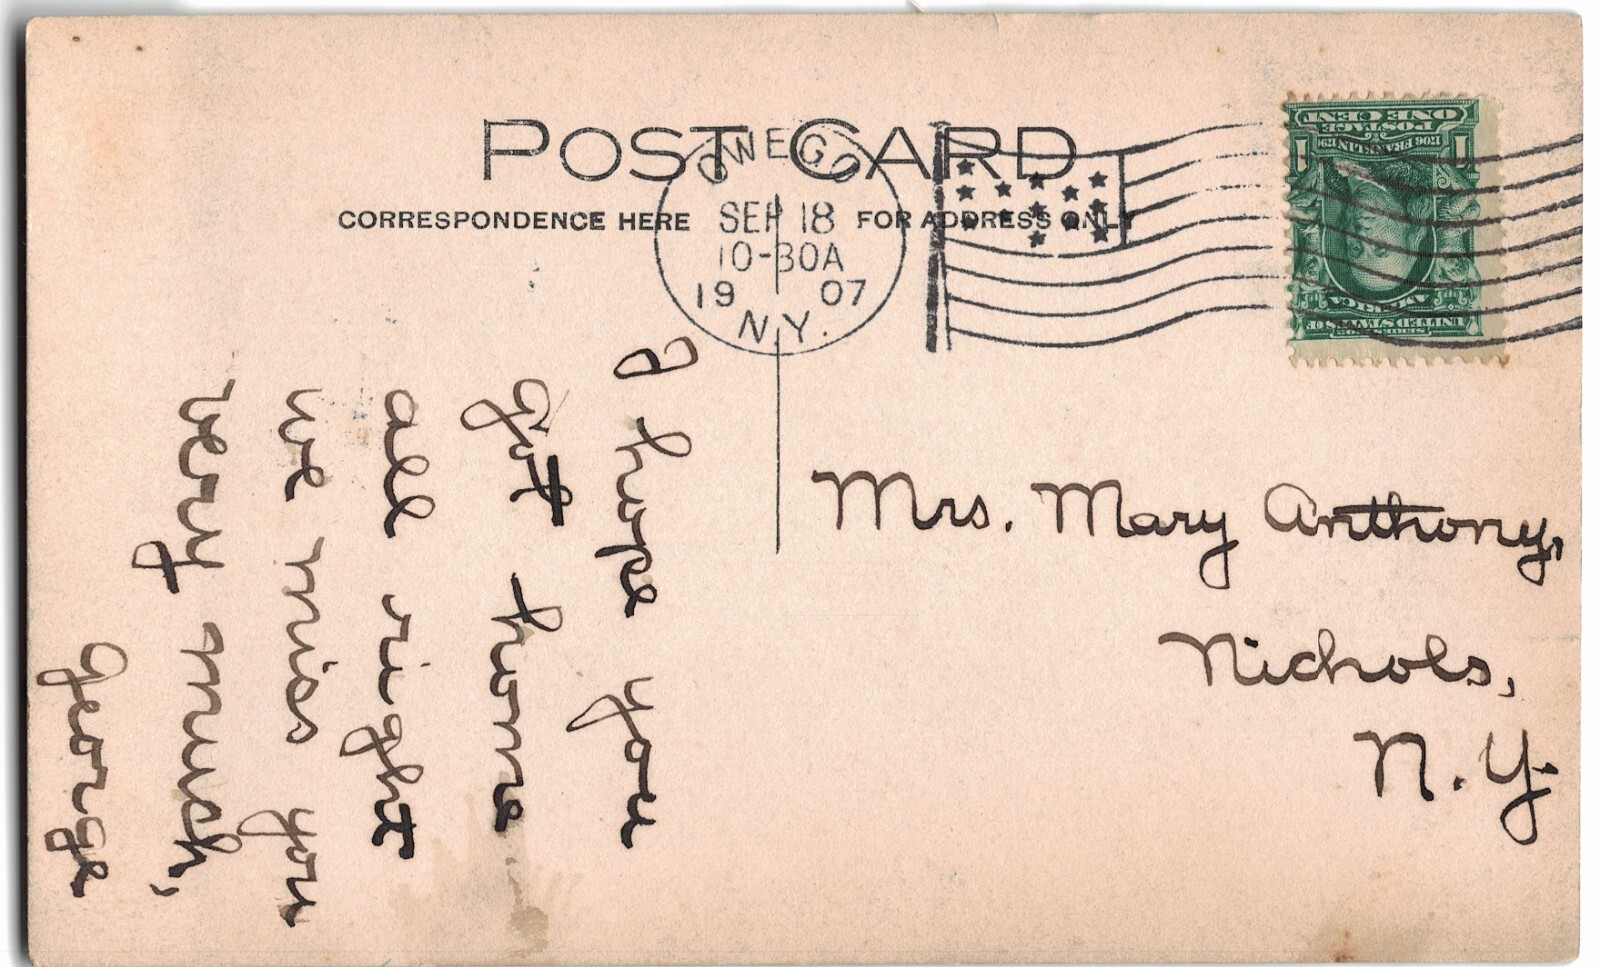 POST CARD
CORRESPONDENCE HERE
FOR ADDRESS ONLY
OWEGO
SEP 18
10-30A
1907
N.Y.
ONE CENT
POSTAGE
1706 FRANKLIN 1790
1 1
SERIES 1902
UNITED STATES OF
AMERICA
I hope you
got home
all right
we miss you
very much,
George
Mrs. Mary Anthony,
Nichols,
N.Y.